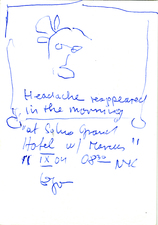 Headache reappeared
in the morning
"at Soho Grand
Hotel w/ Marcus"
" IX 04 08³⁰ NYC